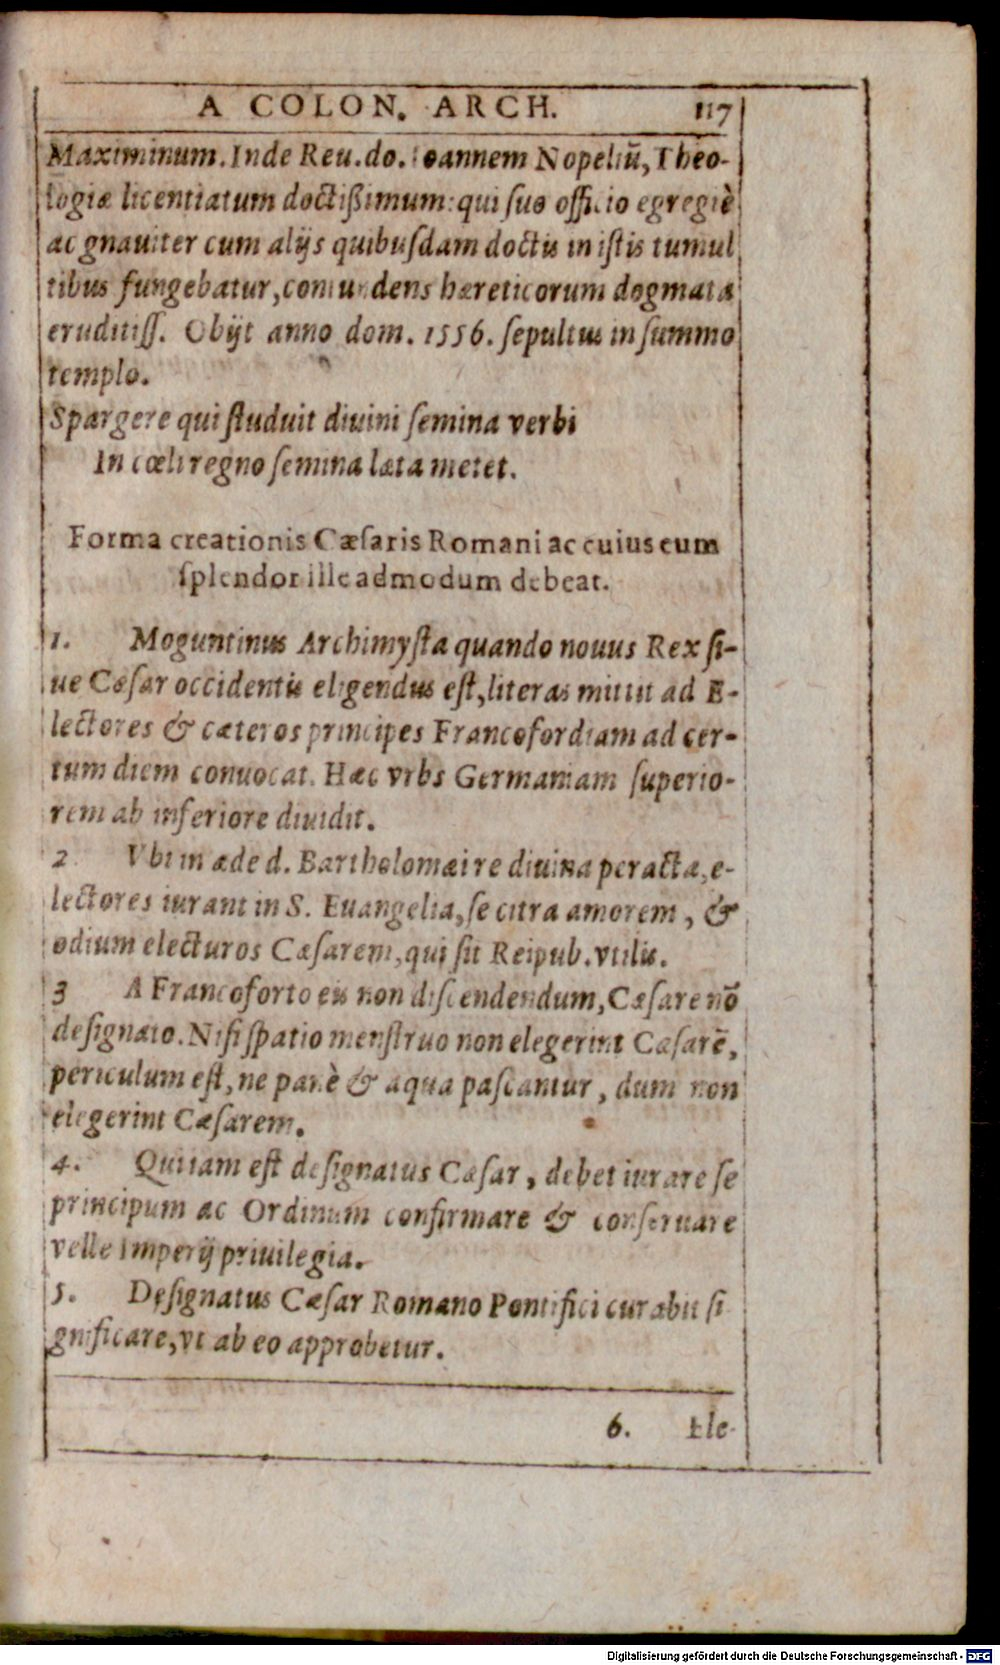 A COLON. ARCH. 117
Maximinum. Inde Reu. do. Ioannem Nopeliū, Theo-
logiæ licentiatum doctißimum: qui suo officio egregiè
ac gnauiter cum alijs quibusdam doctis in istis tumul
tibus fungebatur, contundens hæreticorum dogmata
eruditiss. Obijt anno dom. 1556. sepultus in summo
templo.
Spargere qui studuit diuini semina verbi
In cœli regno semina læta metet.
Forma creationis Cæsaris Romani ac cuius eum
splendor ille admodum debeat.
1. Moguntinus Archimysta quando nouus Rex si-
ue Cæsar occidentis eligendus est, literas mittit ad E-
lectores & cæteros principes Francofordiam ad cer-
tum diem conuocat. Hæc vrbs Germaniam superio-
rem ab inferiore diuidit.
2 Vbi in æde d. Bartholomæi re diuina peracta, e-
lectores iurant in S. Euangelia, se citra amorem, &
odium electuros Cæsarem, qui sit Reipub. vtilis.
3 A Francoforto eis non discendendum, Cæsare nō
designato. Nisi spatio menstruo non elegerint Cæsarē,
periculum est, ne panè & aqua pascantur, dum non
elegerint Cæsarem.
4. Qui iam est designatus Cæsar, debet iurare se
principum ac Ordinum confirmare & conseruare
velle Imperij priuilegia.
5. Designatus Cæsar Romano Pontifici curabit si
gnificare, vt ab eo approbetur.
6. Ele-
Digitalisierung gefördert durch die Deutsche Forschungsgemeinschaft - DFG